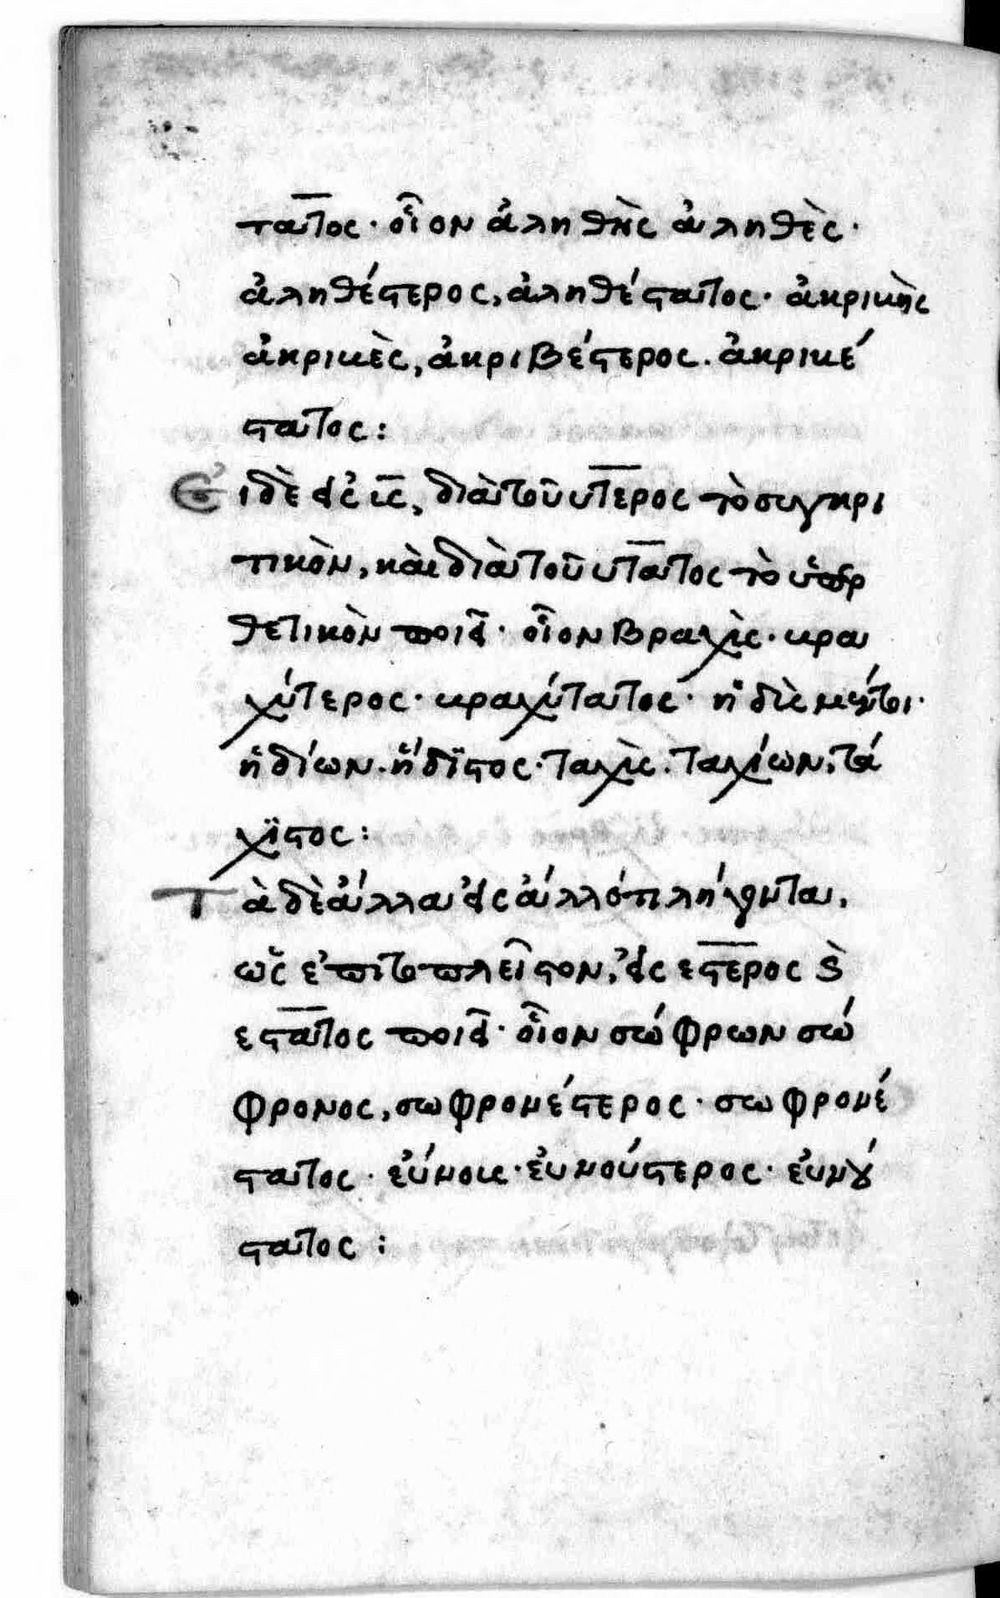 τατος· οἷον ἀληθὴς ἀληθὲς·
ἀληθέστερος, ἀληθέστατος· ἀκριβὴς
ἀκριβὲς, ἀκριβέστερος. ἀκριβέ
στατος:
Εἰ δὲ εἰς υς, διὰ τοῦ υτερος τὸ συγκρι
τικὸν, καὶ διὰ τοῦ υτατος τὸ ὑπερ
θετικὸν ποιεῖ· οἷον βραχὺς· βρα
χύτερος· βραχύτατος· ἡδὺς μέντοι·
ἡδίων. ἥδϊστος· ταχὺς. ταχίων. τά
χϊστος:
Τὰ δὲ ἄλλα εἰς ἄλλό τι λήγοντα,
ὡς ἐπιτοπλεῖστον, εἰς εστερος καὶ
εστατος ποιεῖ· οἷον σώφρων σώ
φρονος, σωφρονέστερος· σωφρονέ
στατος· εὔνους· εὐνούστερος· εὐνού
στατος: